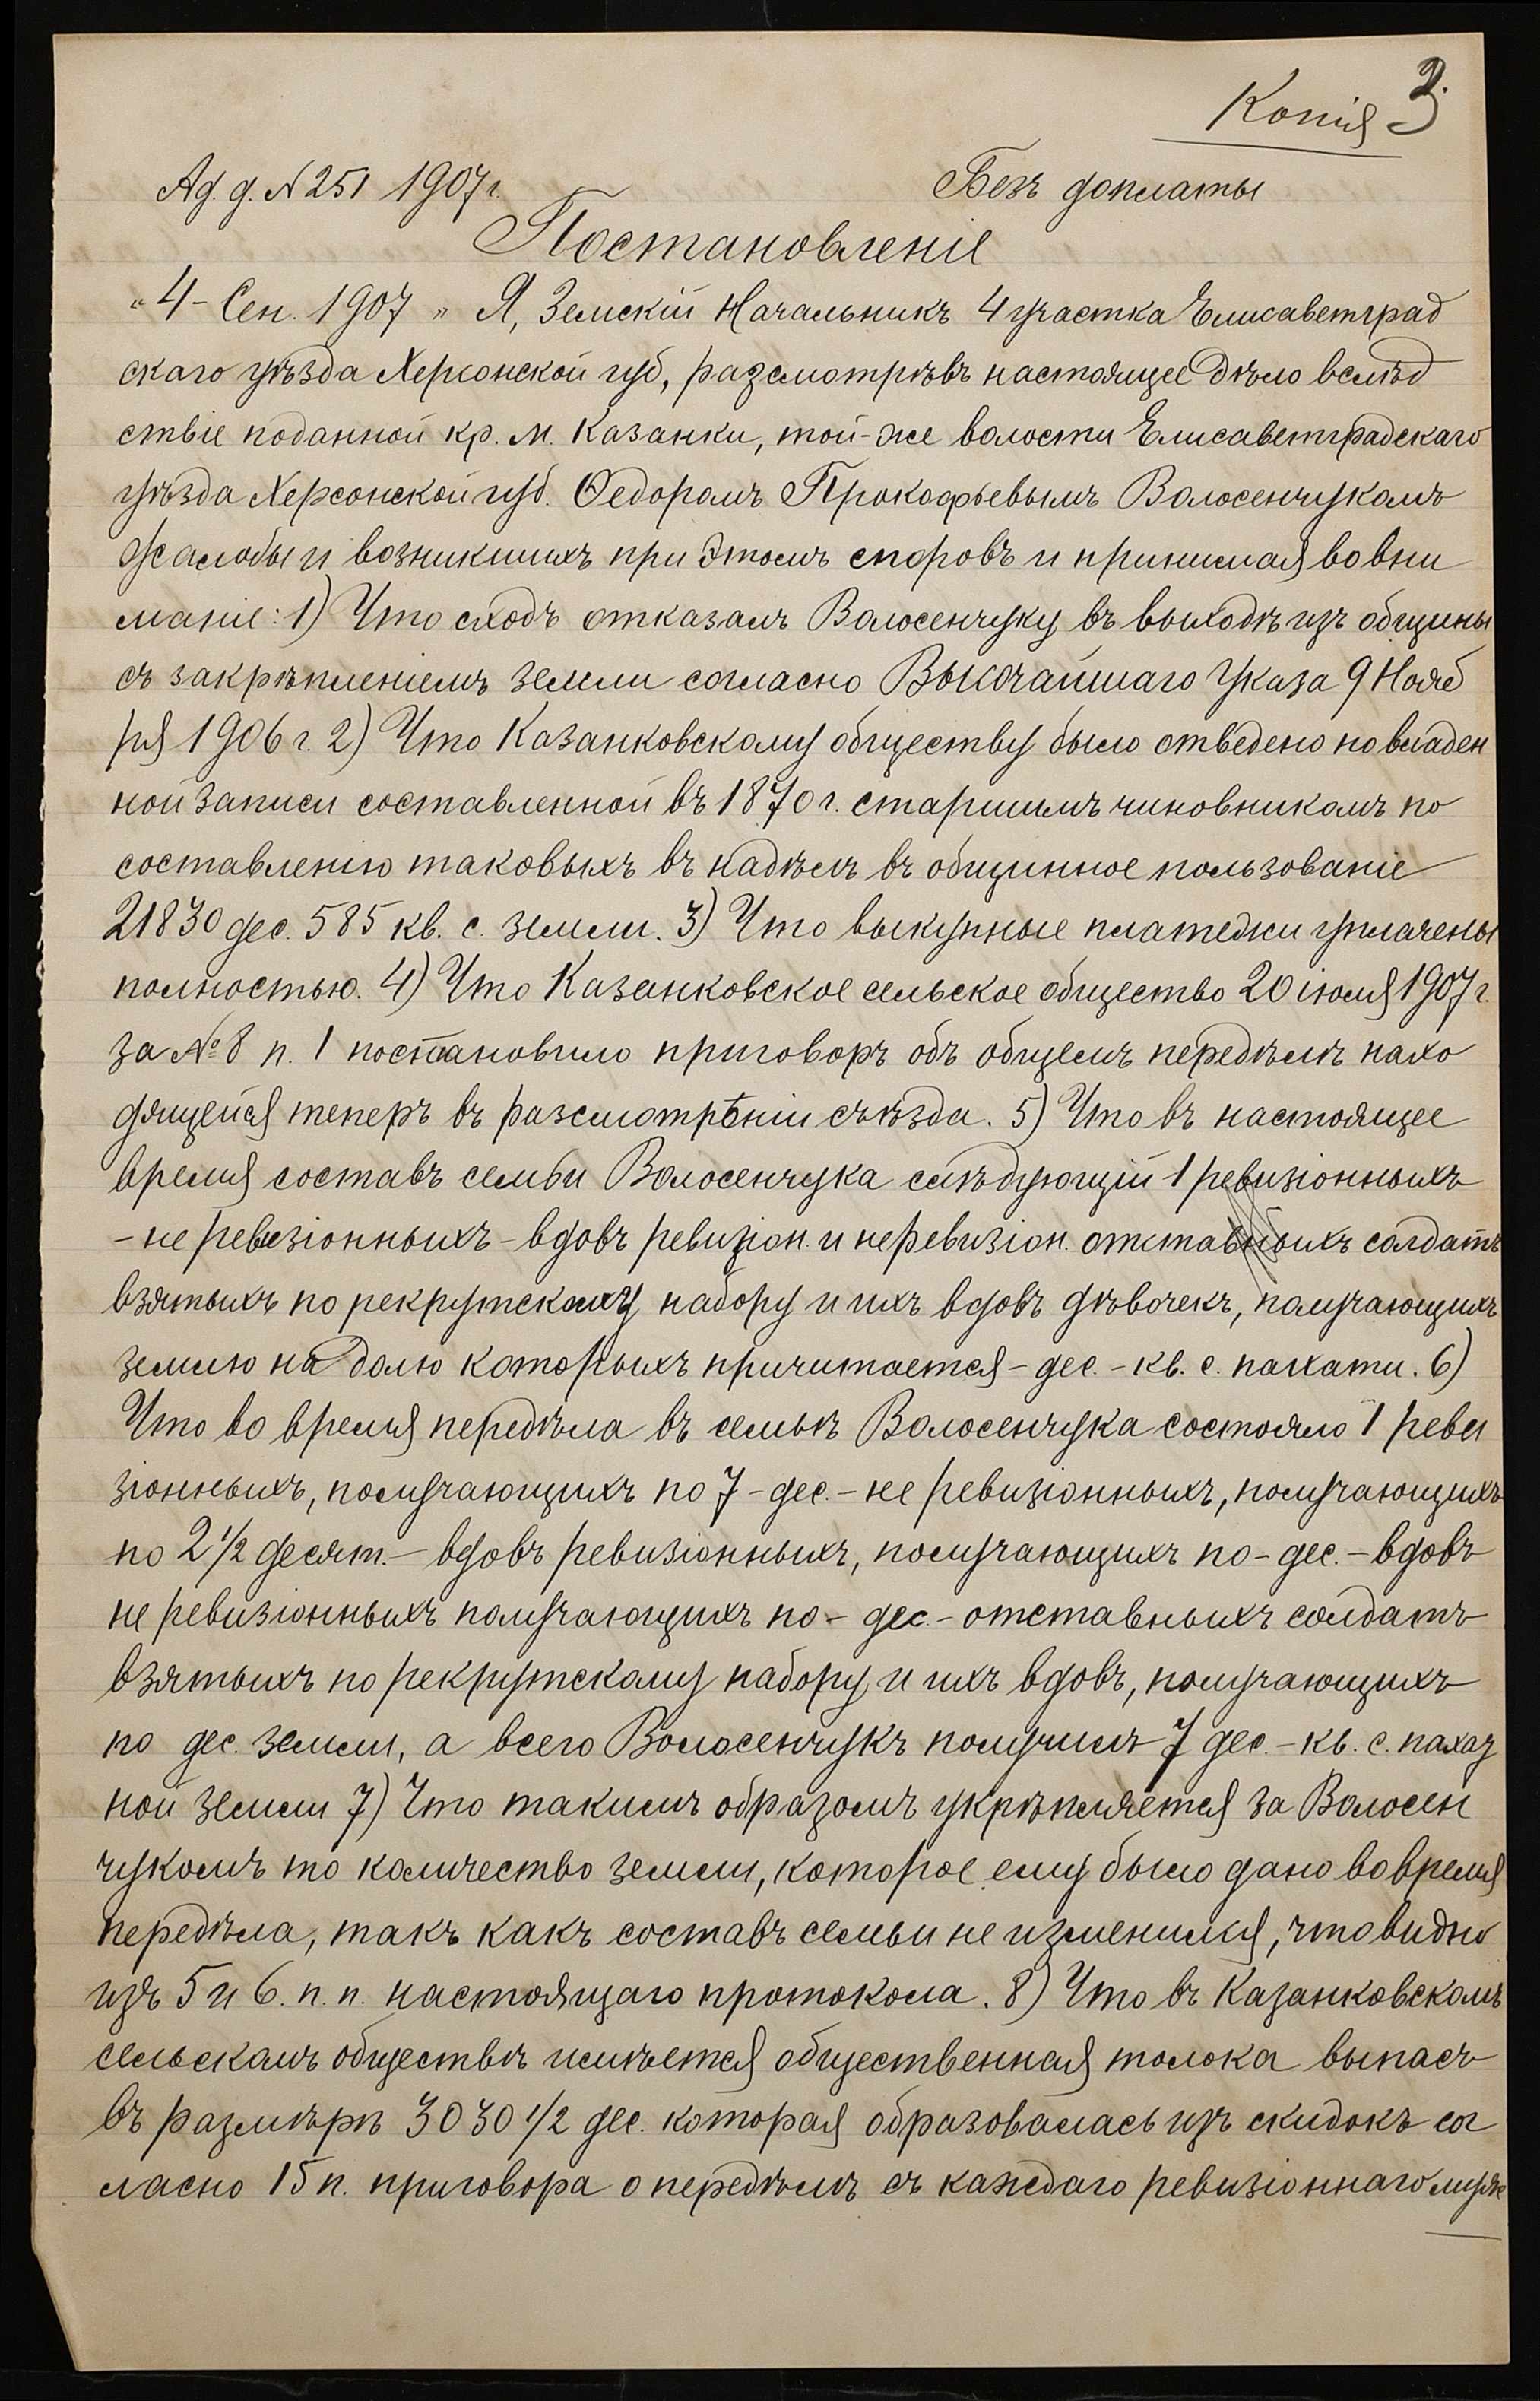 Копія 3.
Ад. д. № 251 1907 г. Безъ доплаты
Постановленіе
"4 - Сен. 1907 " Я, Земскій Начальникъ 4 участка Елисаветград
скаго уѣзда Херсонской губ, разсмотрѣвъ настоящее дѣло вслѣд
ствіе поданной кр. м. Казанки, той-же волости Елисаветградскаго
уѣзда Херсонской губ. Ѳедоромъ Прокофьевымъ Волосенчукомъ
жалобы и возникшихъ при этомъ споровъ и принимая во вни
маніе: 1) Что сходъ отказалъ Волосенчуку въ выходѣ изъ общины
съ закрѣпленіемъ земли согласно Высочайшаго Указа 9 Нояб
ря 1906 г. 2) Что Казанковскому обществу было отведено по владен
ной записи составленной въ 1870 г. старшимъ чиновникомъ по
составленію таковыхъ въ надѣлъ въ общинное пользованіе
21830 дес. 585 кв. с. земли. 3) Что выкупные платежи уплачены
полностью. 4) Что Казанковское сельское общество 20 іюля 1907 г.
за № 8 п. 1 постановило приговоръ объ общемъ передѣлѣ нахо
дящейся теперъ въ разсмотрѣніи съѣзда. 5) Что въ настоящее
время составъ семьи Волосенчука слѣдующій 1 ревизіонныхъ
- не ревизіонныхъ - вдовъ ревизіон. и неревизіон. отставныхъ солдатъ
взятыхъ по рекрутскому набору и ихъ вдовъ дѣвочекъ, получающихъ
землю на долю которыхъ причитается - дес. - кв. с. пахати. 6)
Что во время передѣла въ семьѣ Волосенчука состояло 1 реви
зіонныхъ, получающихъ по 7 - дес. - не ревизіонныхъ, получающихъ
по 2 1/2 десят. - вдовъ ревизіонныхъ, получающихъ по - дес. - вдовъ
не ревизіонныхъ получающихъ по - дес - отставныхъ солдатъ
взятыхъ по рекрутскому набору и ихъ вдовъ, получающихъ
по дес. земли, а всего Волосенчукъ получилъ 7 дес. - кв. с. пахат
ной земли 7) Что такимъ образомъ укрѣпляется за Волосен
чукомъ то количество земли, которое ему было дано во время
передѣла, такъ какъ составъ семьи не изменился, что видно
изъ 5 и 6. п. п. настоящаго протокола. 8) Что въ Казанковскомъ
сельскомъ обществѣ имѣется общественная толока выпасъ
въ размѣрѣ 3030 1/2 дес. которая образовалась изъ скидокъ сог
ласно 15 п. приговора о передѣлѣ съ каждаго ревизіоннаго муж